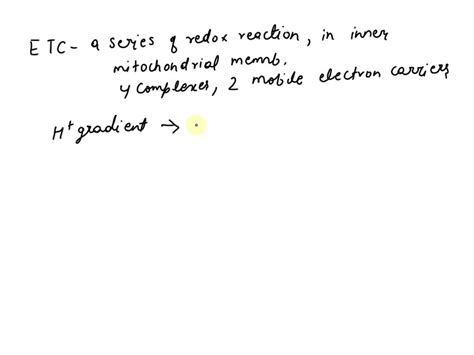 ETC - a series of redox reaction, in inner
mitochondrial memb.
4 complexes, 2 mobile electron carriers
H⁺ gradient →